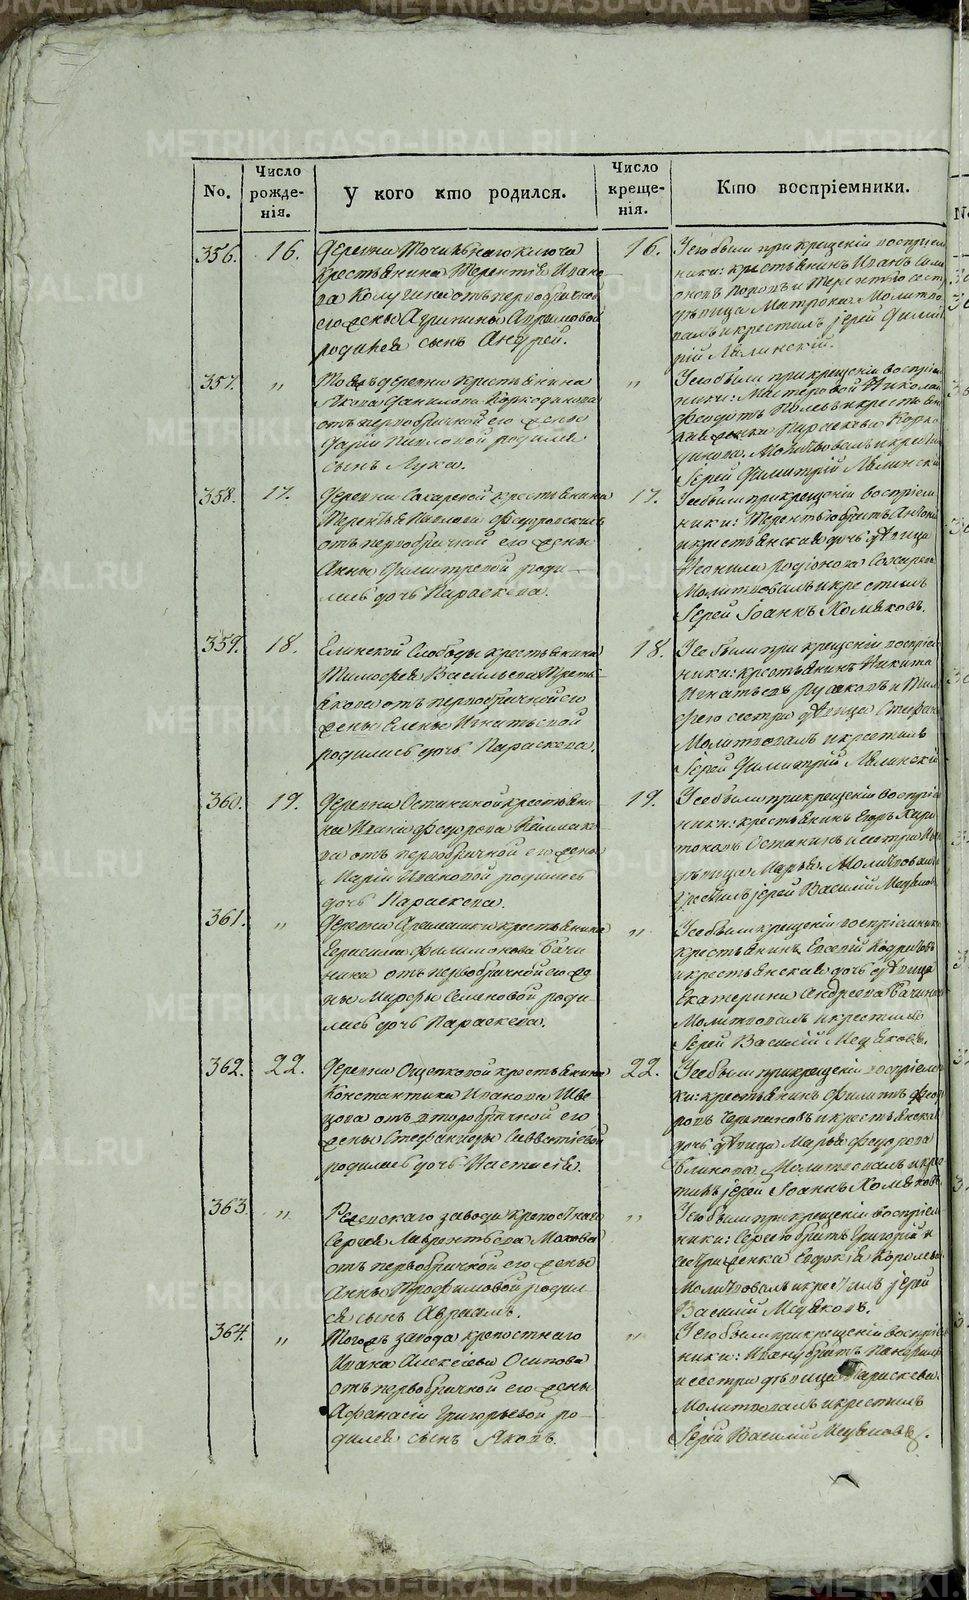 METRIKI.GASO-URAL.RU
No.
Число рожде-нія.
У кого кто родился.
Число креще-нія.
Кто воспріемники.
356.
16.
Деревни Точильнаго Ключа
крестьянина Терентія Ивано
ва Калугина отъ первобрачной
его жены Агрипины
родился сынъ Андрей.
16.
У сего были при крещеніи воспріем
ники: крестьянинъ Иванъ
и Терентію сест
дѣвица Матрона Молитво
валъ и крестилъ іерей Дими
трій Лялинскій.
357.
"
Тояжъ деревни крестьянина
Якова Данилова
отъ первобрачной его жены
Даріи Павловой родился
сынъ Лука.
"
У сего были при крещеніи воспріем
ники: Мастеровой Николай
и крестьян
ская женка Параскева
Молитвовалъ и крестил
Іерей Димитрій Лялинскій
358.
17.
Деревни Сохаревой крестьянина
Терентья Павлова
отъ первобрачной его жены
Анны Димитревой роди-
лась дочь Параскева.
17.
У сей были при крещеніи воспріем
ники: Терентью братъ Антоній
и крестьянская дочь дѣвица
Неонила Родіонова Сохарева
Молитвовалъ и крестилъ
Іерей Іоаннъ Хомяковъ.
359.
18.
Слободы крестьянина
Тимофея Васильева Треть
якова отъ первобрачной его
жены Елены Игнатьевой
родилась дочь Параскева.
18.
У сей были при крещеніи воспріем
ники: крестьянинъ Никита
Игнатьевъ
сестра дѣвица Стефанида
Молитвовалъ и крестилъ
Іерей Димитрій Лялинскій
360.
19.
Деревни Останиной крестьяни
на Ивана Федорова
ва отъ первобрачной его жены
Маріи Ивановой родилась
дочь Параскева.
19.
У сей были при крещеніи воспріем
ники: крестьянинъ Егоръ Хари
тоновъ Останинъ и сестра
дѣвица Марья. Молитвовалъ и
крестилъ іерей Василій
361.
"
Деревни крестьянина
Филимонова Бачи
нина отъ первобрачной его же
ны Марфы Семеновой роди
лась дочь Параскева.
"
У сей были крещеніи воспріемники
крестьянинъ Евсевій
и крестьянская дочь дѣвица
Екатерина Андреева Бачинина
Молитвовалъ и крестилъ
Іерей Василій
362.
22.
Деревни Ощепковой крестьянина
Константина Иванова Шве
цова отъ второбрачной его
жены Стефаниды Савватіевой
родилась дочь Настасія.
22.
У сей были при крещеніи воспріемни
ки: крестьянинъ Филипъ Федо
ровъ и крестьянская
дочь дѣвица Марья Федорова
Блинова Молитвовалъ и кре
стилъ іерей Іоаннъ Хомяковъ.
363
"
Режевскаго завода крепостнаго
Сергея Лаврентьева Мокова
отъ первобрачной его жены
Анны Трофимовой родил-
ся сынъ Авраамъ.
"
У сего были при крещеніи воспріем
ники: Сергею братъ Григорій и
женка Евдокія Королева
Молитвовалъ и крестилъ іерей
Василій
364.
"
Тогожъ завода крепостнаго
Ивана Алексіева Осипова
отъ первобрачной его жены
Афанасіи Григорьевой ро-
дился сынъ Яковъ.
"
У сего были при крещеніи воспріем
ники: Ивану братъ Панфилъ
и сестра дѣвица Параскева.
Молитвовалъ и крестилъ
Іерей Василій